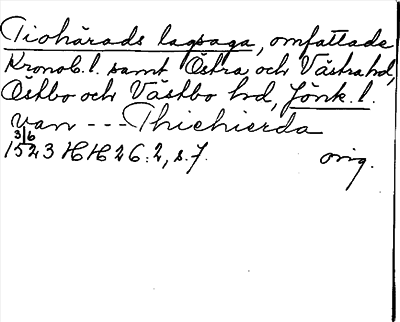 Tiohärads lagsaga, omfattade
Kronob. l. samt Östra och Västra hd,
Östbo och Västbo hd, Jönk. l.
van --- Thiehierda
3/6
1523 HH 26:2, s. 7. orig.